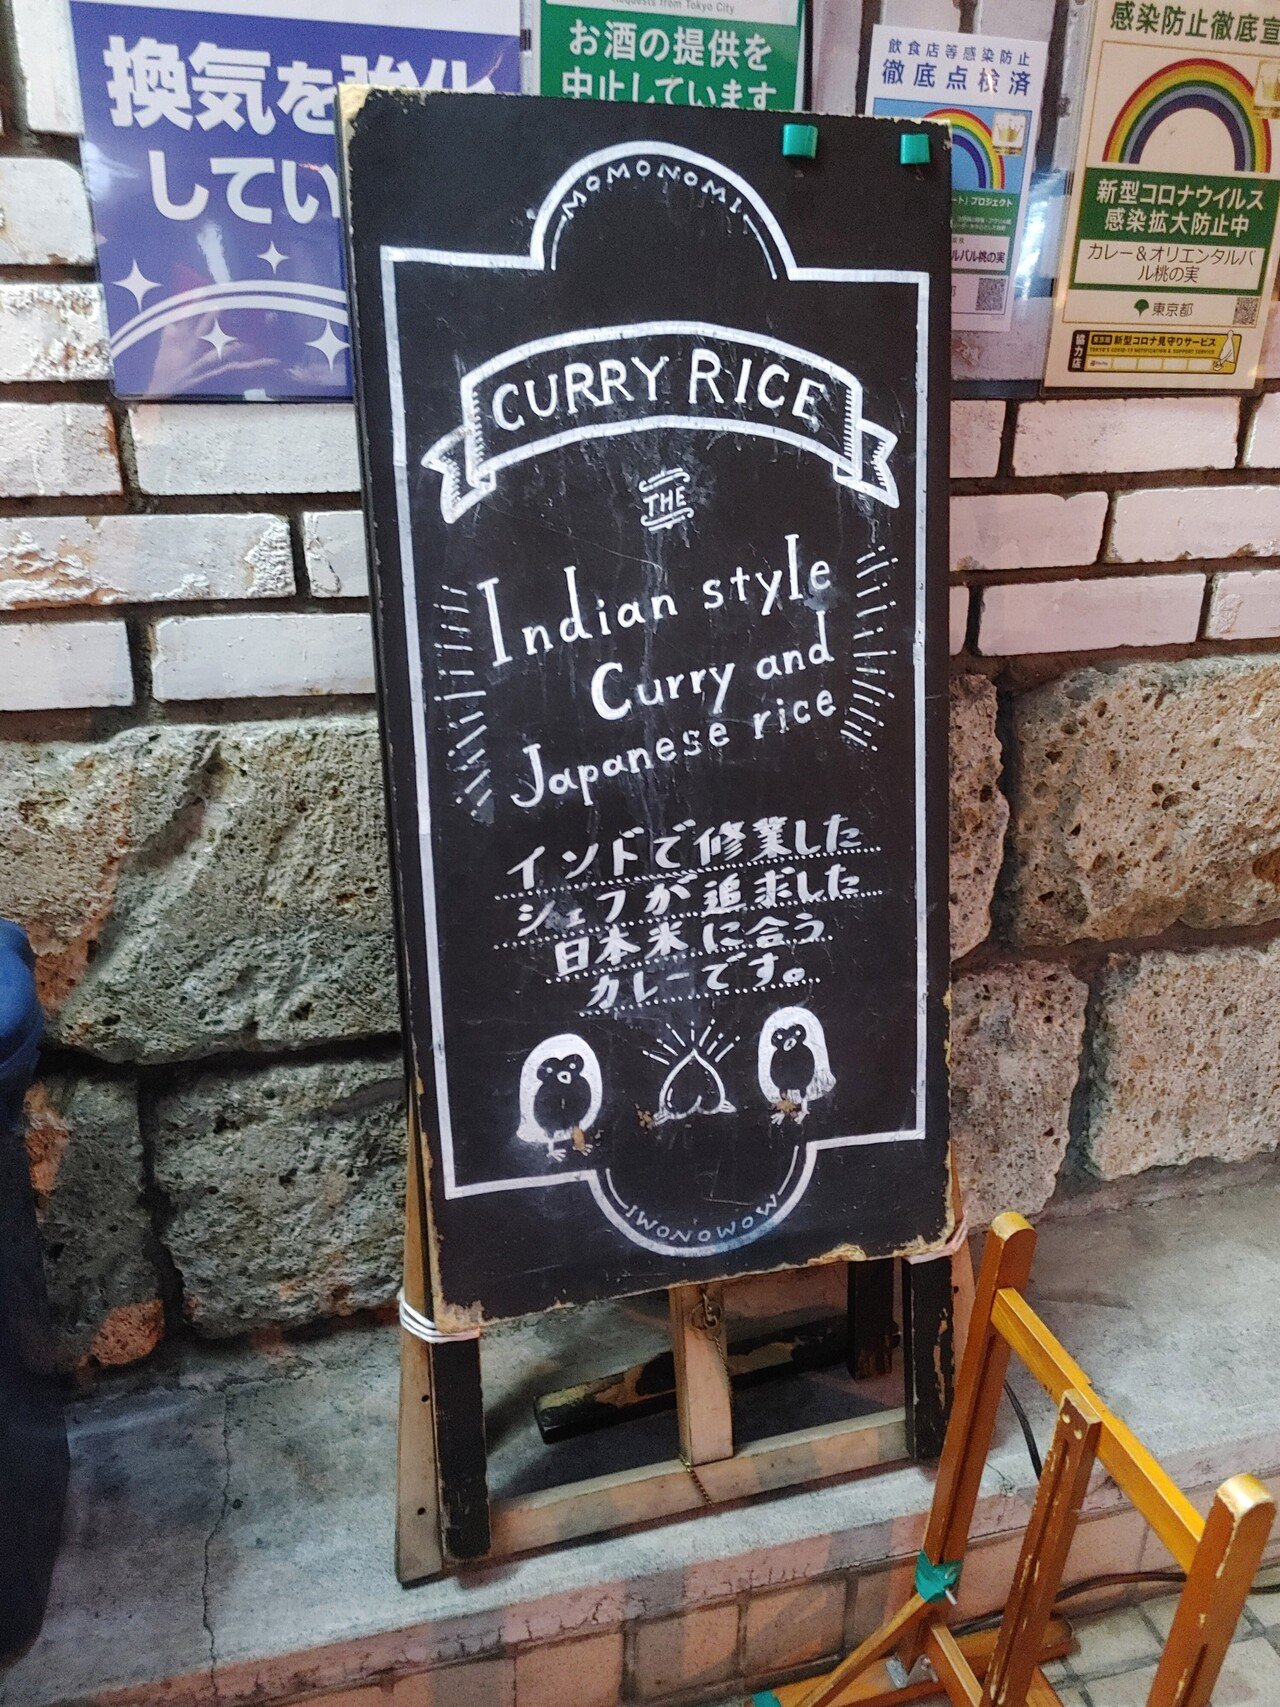 換気を強化
してい
Requests from Tokyo City
お酒の提供を
中止しています
飲食店等感染防止
徹底点検済
ート」プロジェクト
ルバル桃の実
感染防止徹底宣
新型コロナウイルス
感染拡大防止中
カレー&オリエンタルバ
ル桃の実
東京都
協力店
東京版
新型コロナ見守りサービス
TOKYO'S COVID-19 NOTIFICATION & SUPPORT SERVICE
MOMONOMI
CURRY RICE
THE
Indian style
Curry and
Japanese rice
インドで修業した
シェフが追求した
日本米に合う
カレーです。
MOMONOMI